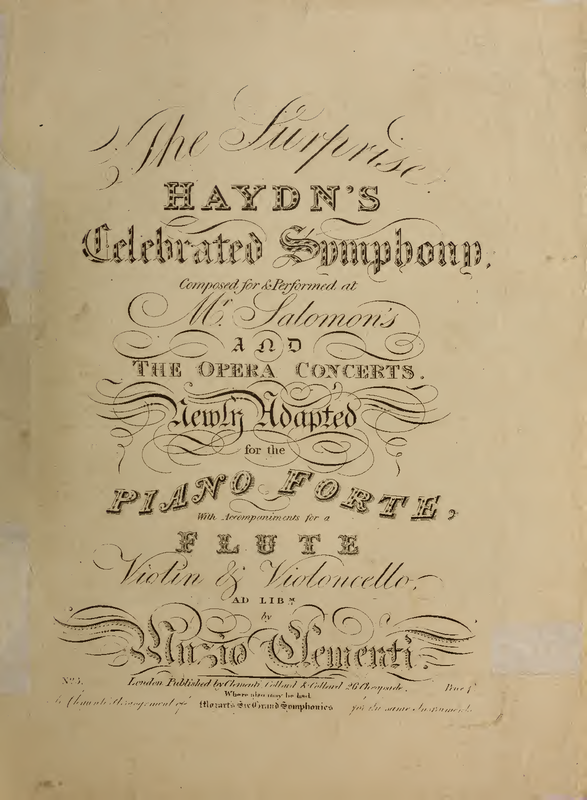 The Surprise
HAYDN'S
Celebrated Symphony.
Composed for & Performed at
Mr. Salomon's
AND
THE OPERA CONCERTS.
Newly Adapted
for the
PIANO FORTE,
With Accompaniments for a
FLUTE
Violin & Violoncello.
AD LIBM
by
Muzio Clementi.
No. 5. London. Published by Clementi, Collard & Collard 26 Cheapside. Price
Where also may be had
Clementi's Arrangement of Mozart's Six Grand Symphonies for the same Instruments